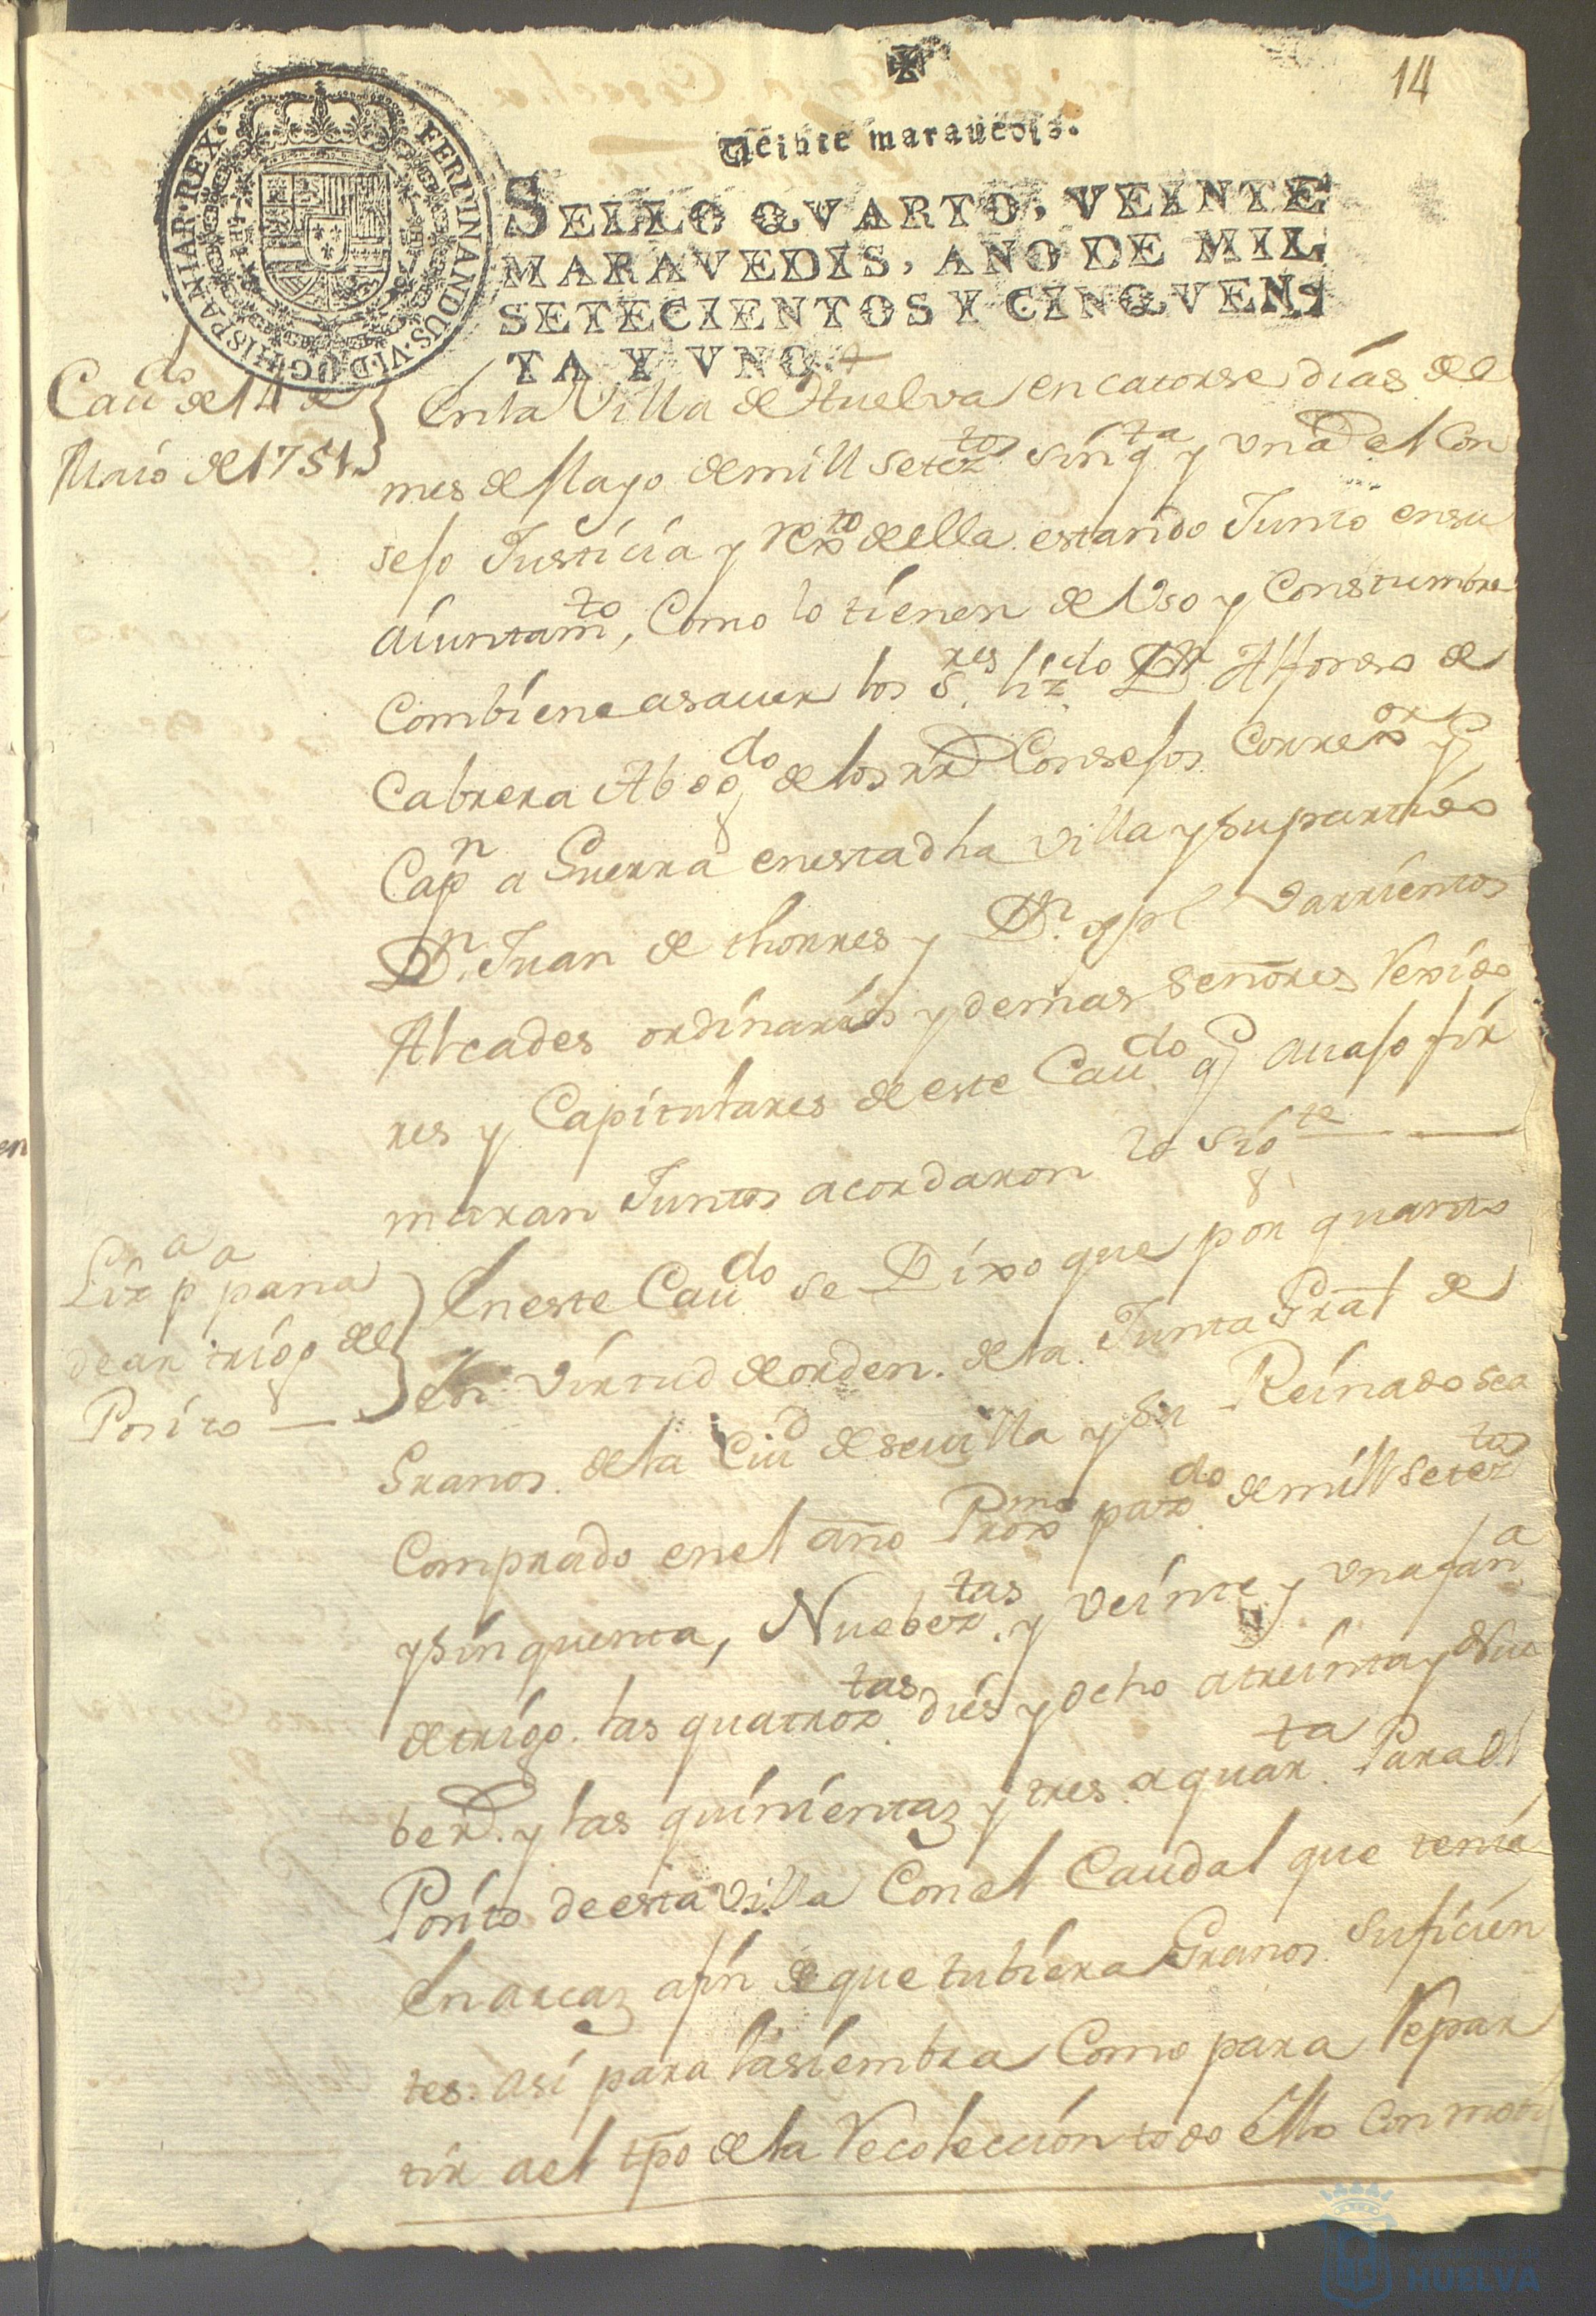 14
Veinte maravedis.
SELLO QVARTO, VEINTE
MARAVEDIS, AÑO DE MIL
SETECIENTOS Y CINQVEN-
TA Y VNO.
FERDINANDUS·VI·D·G·HISPANIAR·REX·
Cau.do de 14 de
Maio de 1751.
En la Villa de Huelva en catorse dias del
mes de Mayo de mill setez.tos sinq.ta y una el Con
sejo Justicia y Rex.to de ella estando Junto en su
aiuntam.to, Como lo tienen de Uso y Constumbre
Combiene a sauer los S.res liz.do Dn Alfonso de
Cabrera Abog.do de los RR.s Consejos Correx.or y
Cap.n a Guerra en esta dha villa y su partido
Dn. Juan de thorres y Dn. xpl Varrientos
Alcades ordinarios y demas señores Rexido
res y Capitulares de este Cau.do q.e auajo fir
maran Juntos acordaron lo sig.te
Liz.a p.a pana
dear trigo del
Posito
En este Cau.do se Dixo que por quanto
En virtud de orden de la Junta Gral de
Granos de la Ciud de seuilla y su Reinado se a
Comprado en el año Prox.mo paz.do de mill setez.tos
y sinquenta, Nuebez.tas y veinte y una fan.a
de trigo las quatroz.tas dies y ocho a treinta y Nue
be r.s y las quinientaz y tres a quar.ta Para el
Posito de esta Villa Con el Caudal que tenia
En arcaz a fin de que tubiera Granos suficien
tes asi para la siembra Como para Repar
tir a el tpo de la Recoleccion todo ello Con moti
HUELVA